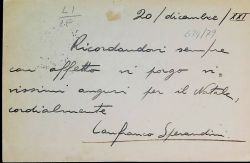 LI
20/dicembre/XXI
674/79
Ricordandovi sempre
con affetto vi porgo vi-
vissimi auguri per il Natale,
cordialmente
Lanfranco Sperandini